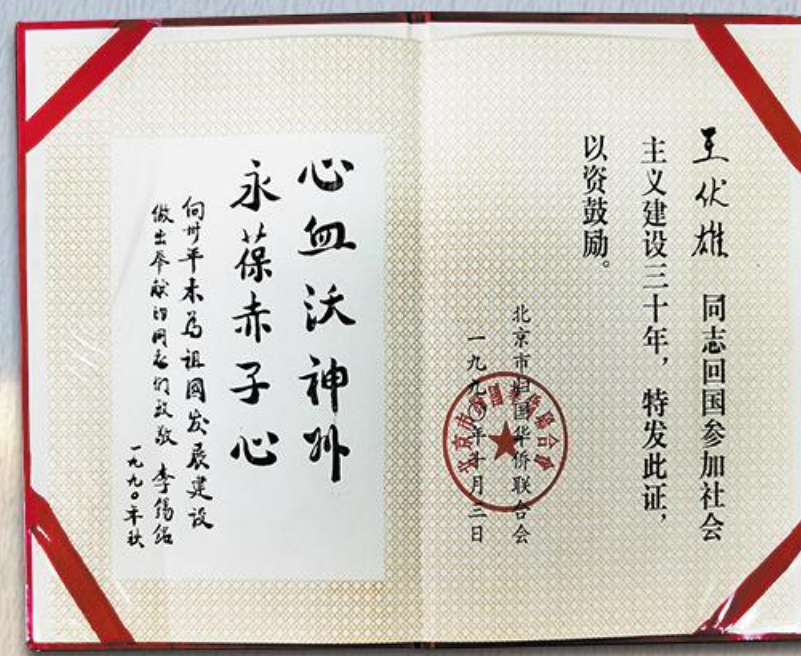 王伏雄 同志回国参加社会
主义建设三十年，特发此证，
以资鼓励。
北京市归国华侨联合会
一九九〇年十月三日
北京市归国华侨联合会
心血沃神州
永葆赤子心
向卅年来为祖国发展建设
做出奉献的同志们致敬 李锡铭
一九九〇年秋